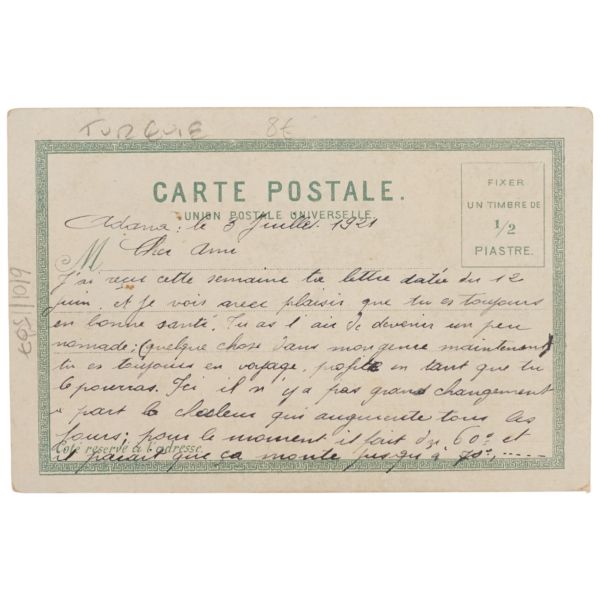 TURQUIE 8€
CARTE POSTALE.
UNION POSTALE UNIVERSELLE.
FIXER
UN TIMBRE DE
1/2
PIASTRE.
Adana: le 3 Juillet. 1921
M Cher Ami
J'ai reçu cette semaine ta lettre datée du 12
juin. et Je vois avec plaisir que tu es toujours
en bonne santé. Tu as l'air de devenir un peu
nomade; Quelque chose dans mon genre maintenant
tu es toujours en voyage, profite en tant que tu
le pourras. Ici il n'y a pas grand changement
a part la chaleur qui augmente tous les
jours; pour le moment il fait 60° et
il parait que ça monte jusqu'à 70°.......
Coté reservé à l'adresse